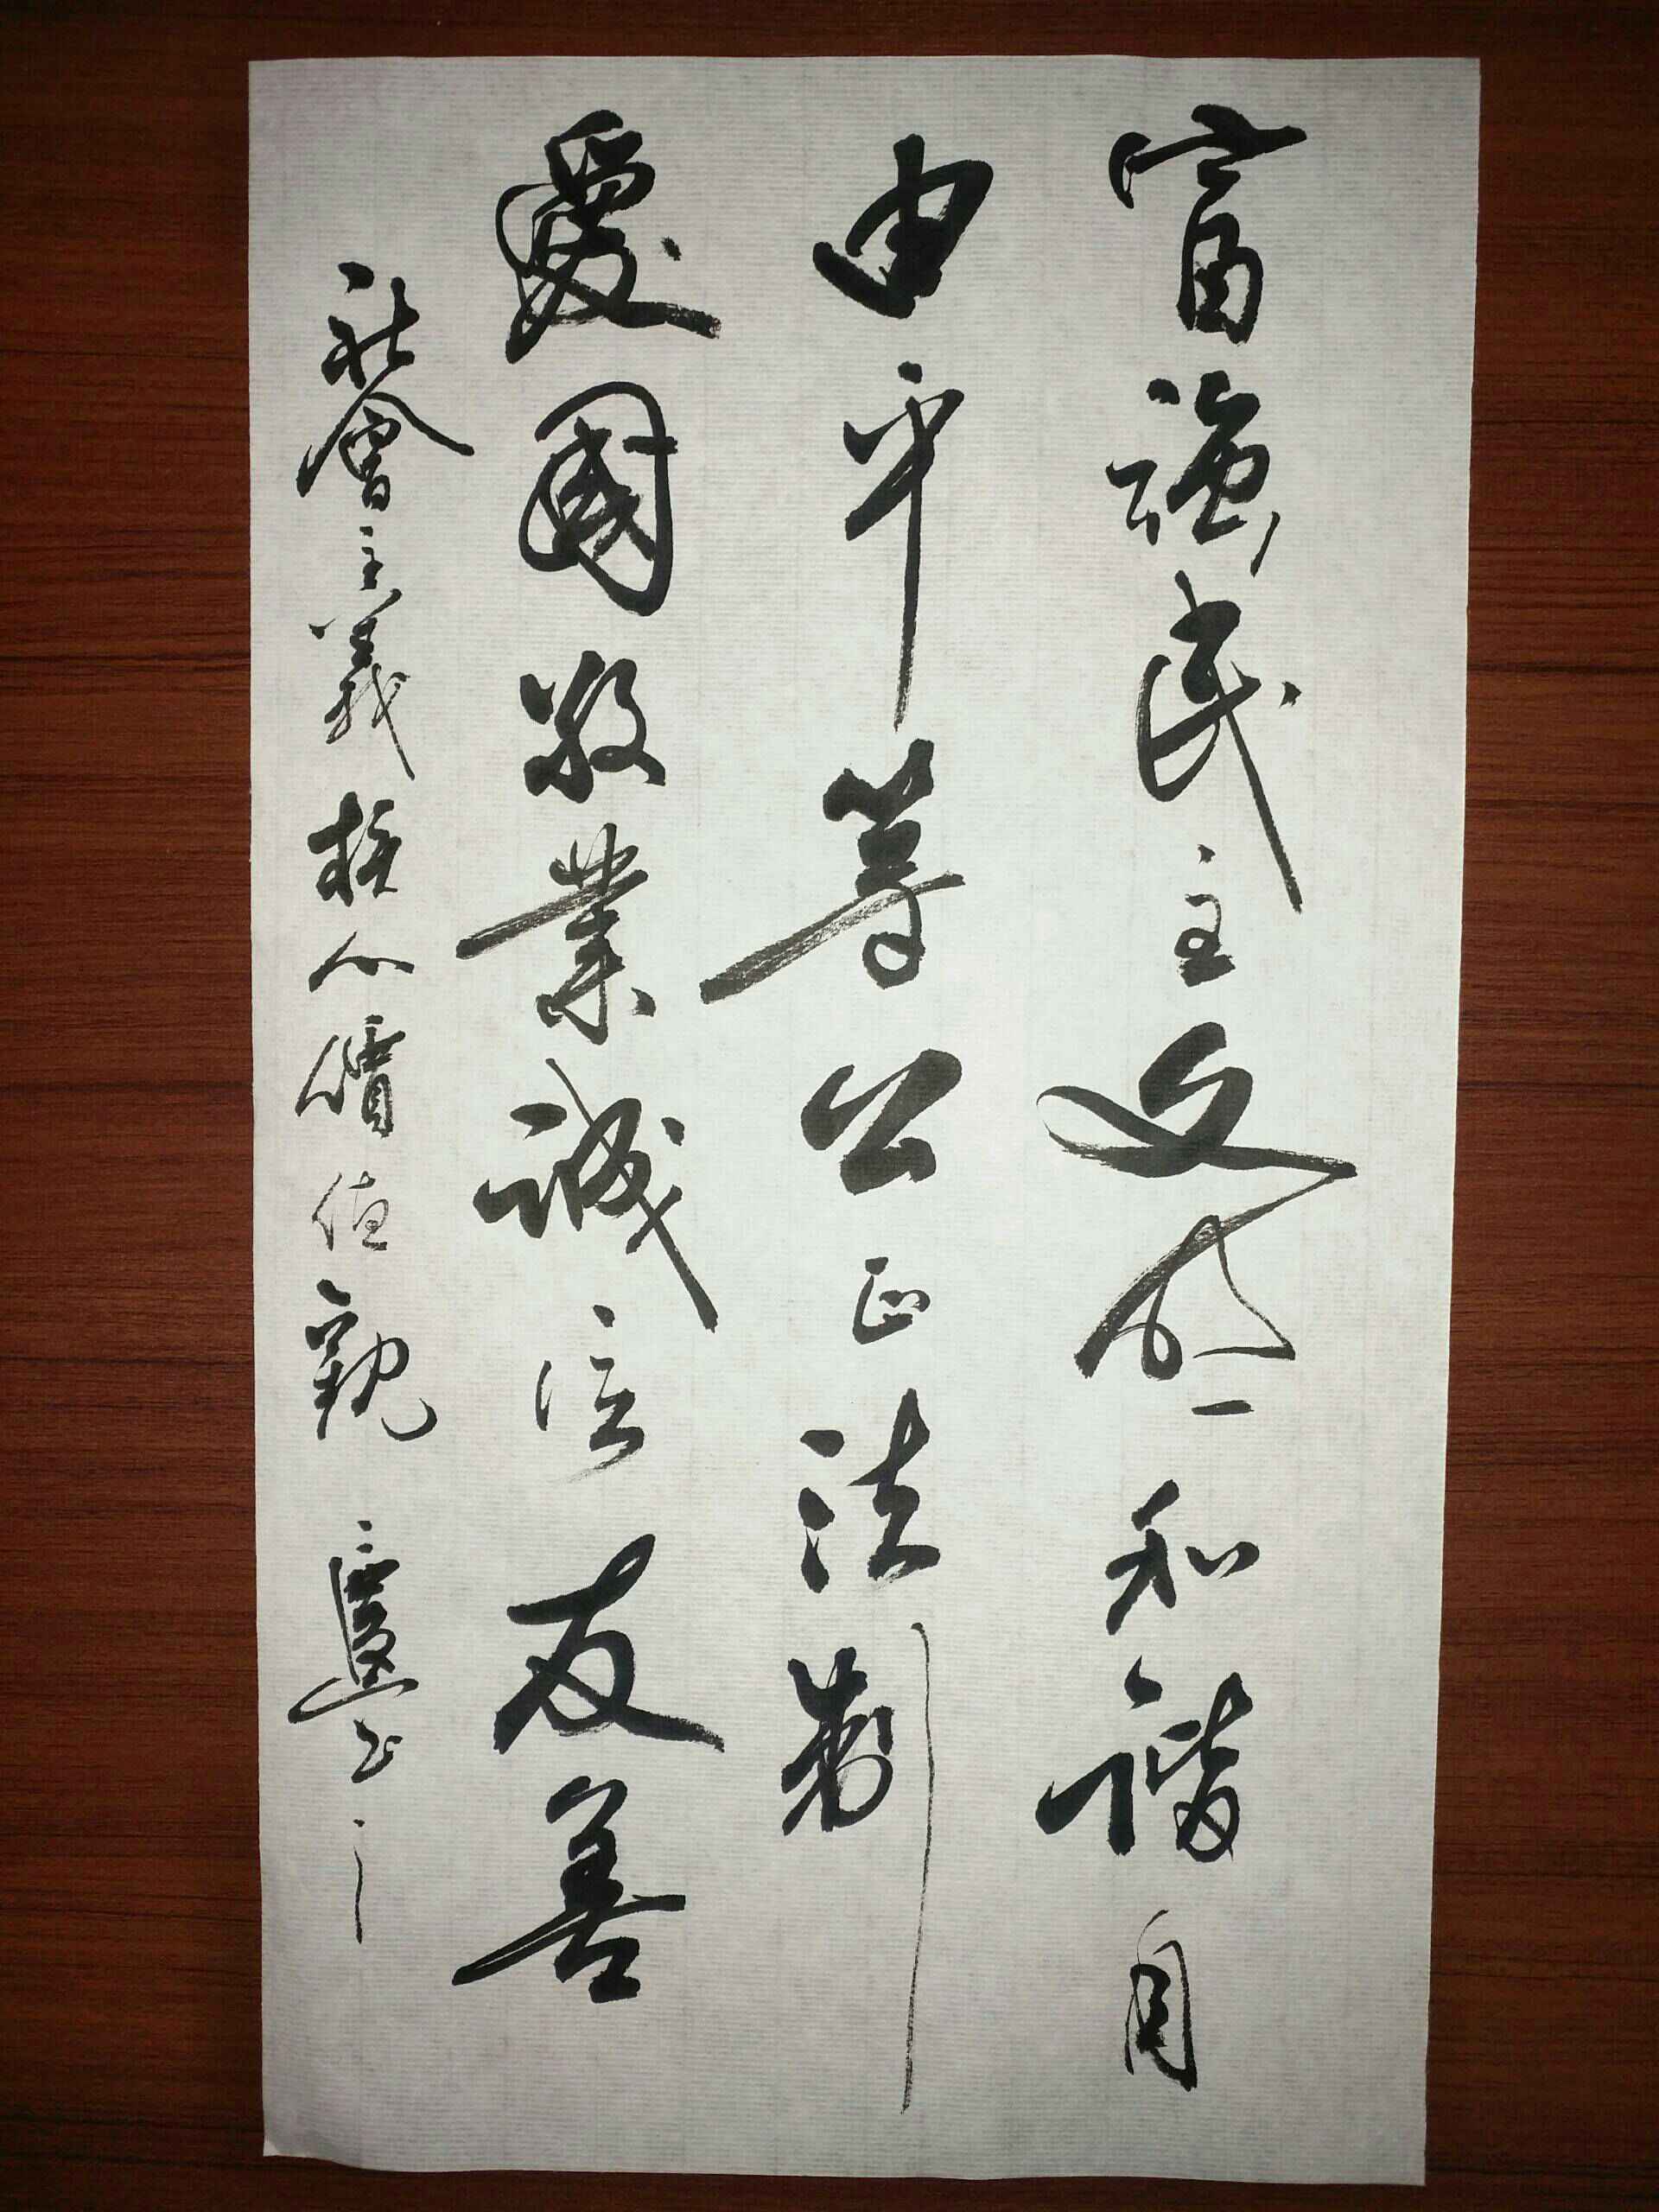 富強民主文明和諧自
由平等公正法制
愛國敬業誠信友善
社會主義核心價值觀 書